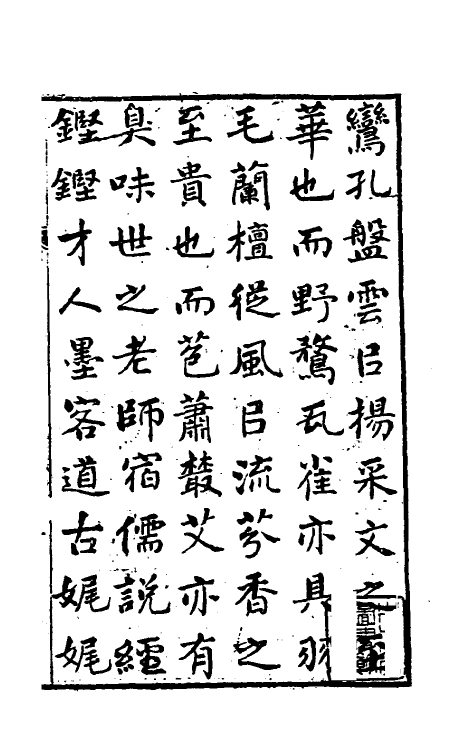 鸞孔盤雲㠯揚采文之
華也而野鶩瓦雀亦具羽
毛蘭檀從風㠯流芬香之
至貴也而苞蕭藂艾亦有
臭味世之老師宿儒說經
鏗鏗才人墨客道古娓娓